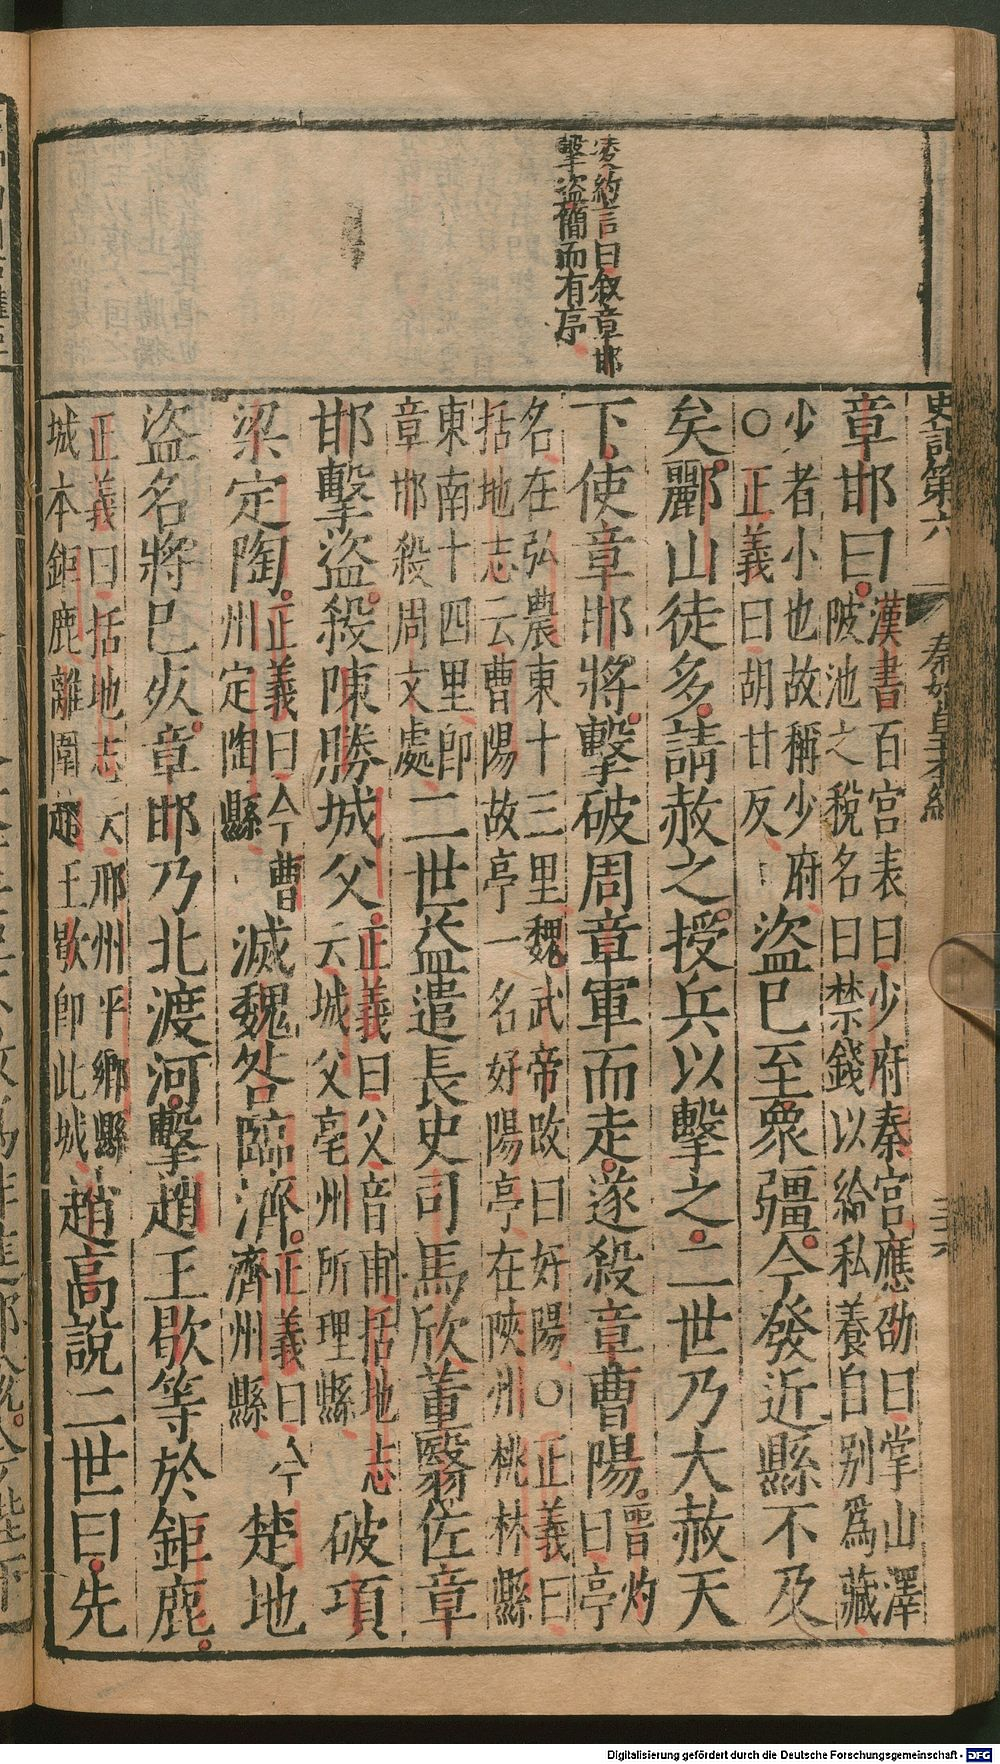 凌約言曰叙章邯
擊盜簡而有序
史記第六 秦始皇本紀
章邯曰漢書百官表曰少府秦官應劭曰掌山澤
陂池之稅名曰禁錢以給私養自别爲藏
少者小也故稱少府
○正義曰胡甘反
盜已至衆彊今發近縣不及
矣酈山徒多請赦之授兵以擊之二世乃大赦天
下使章邯將擊破周章軍而走遂殺章曹陽晉灼
曰亭
名在弘農東十三里魏武帝改曰好陽○正義曰
括地志云曹陽故亭一名好陽亭在陝州桃林縣
東南十四里即
章邯殺周文處
二世益遣長史司馬欣董翳佐章
邯擊盜殺陳勝城父正義曰父音甫括地志
云城父亳州所理縣
破項
梁定陶正義曰今曹
州定陶縣
滅魏咎臨濟正義曰今
濟州縣
楚地
盜名將已死章邯乃北渡河擊趙王歇等於鉅鹿
正義曰括地志云邢州平鄉縣
城本鉅鹿離圍趙王歇即此城
趙高說二世曰先
Digitalisierung gefördert durch die Deutsche Forschungsgemeinschaft - DFG